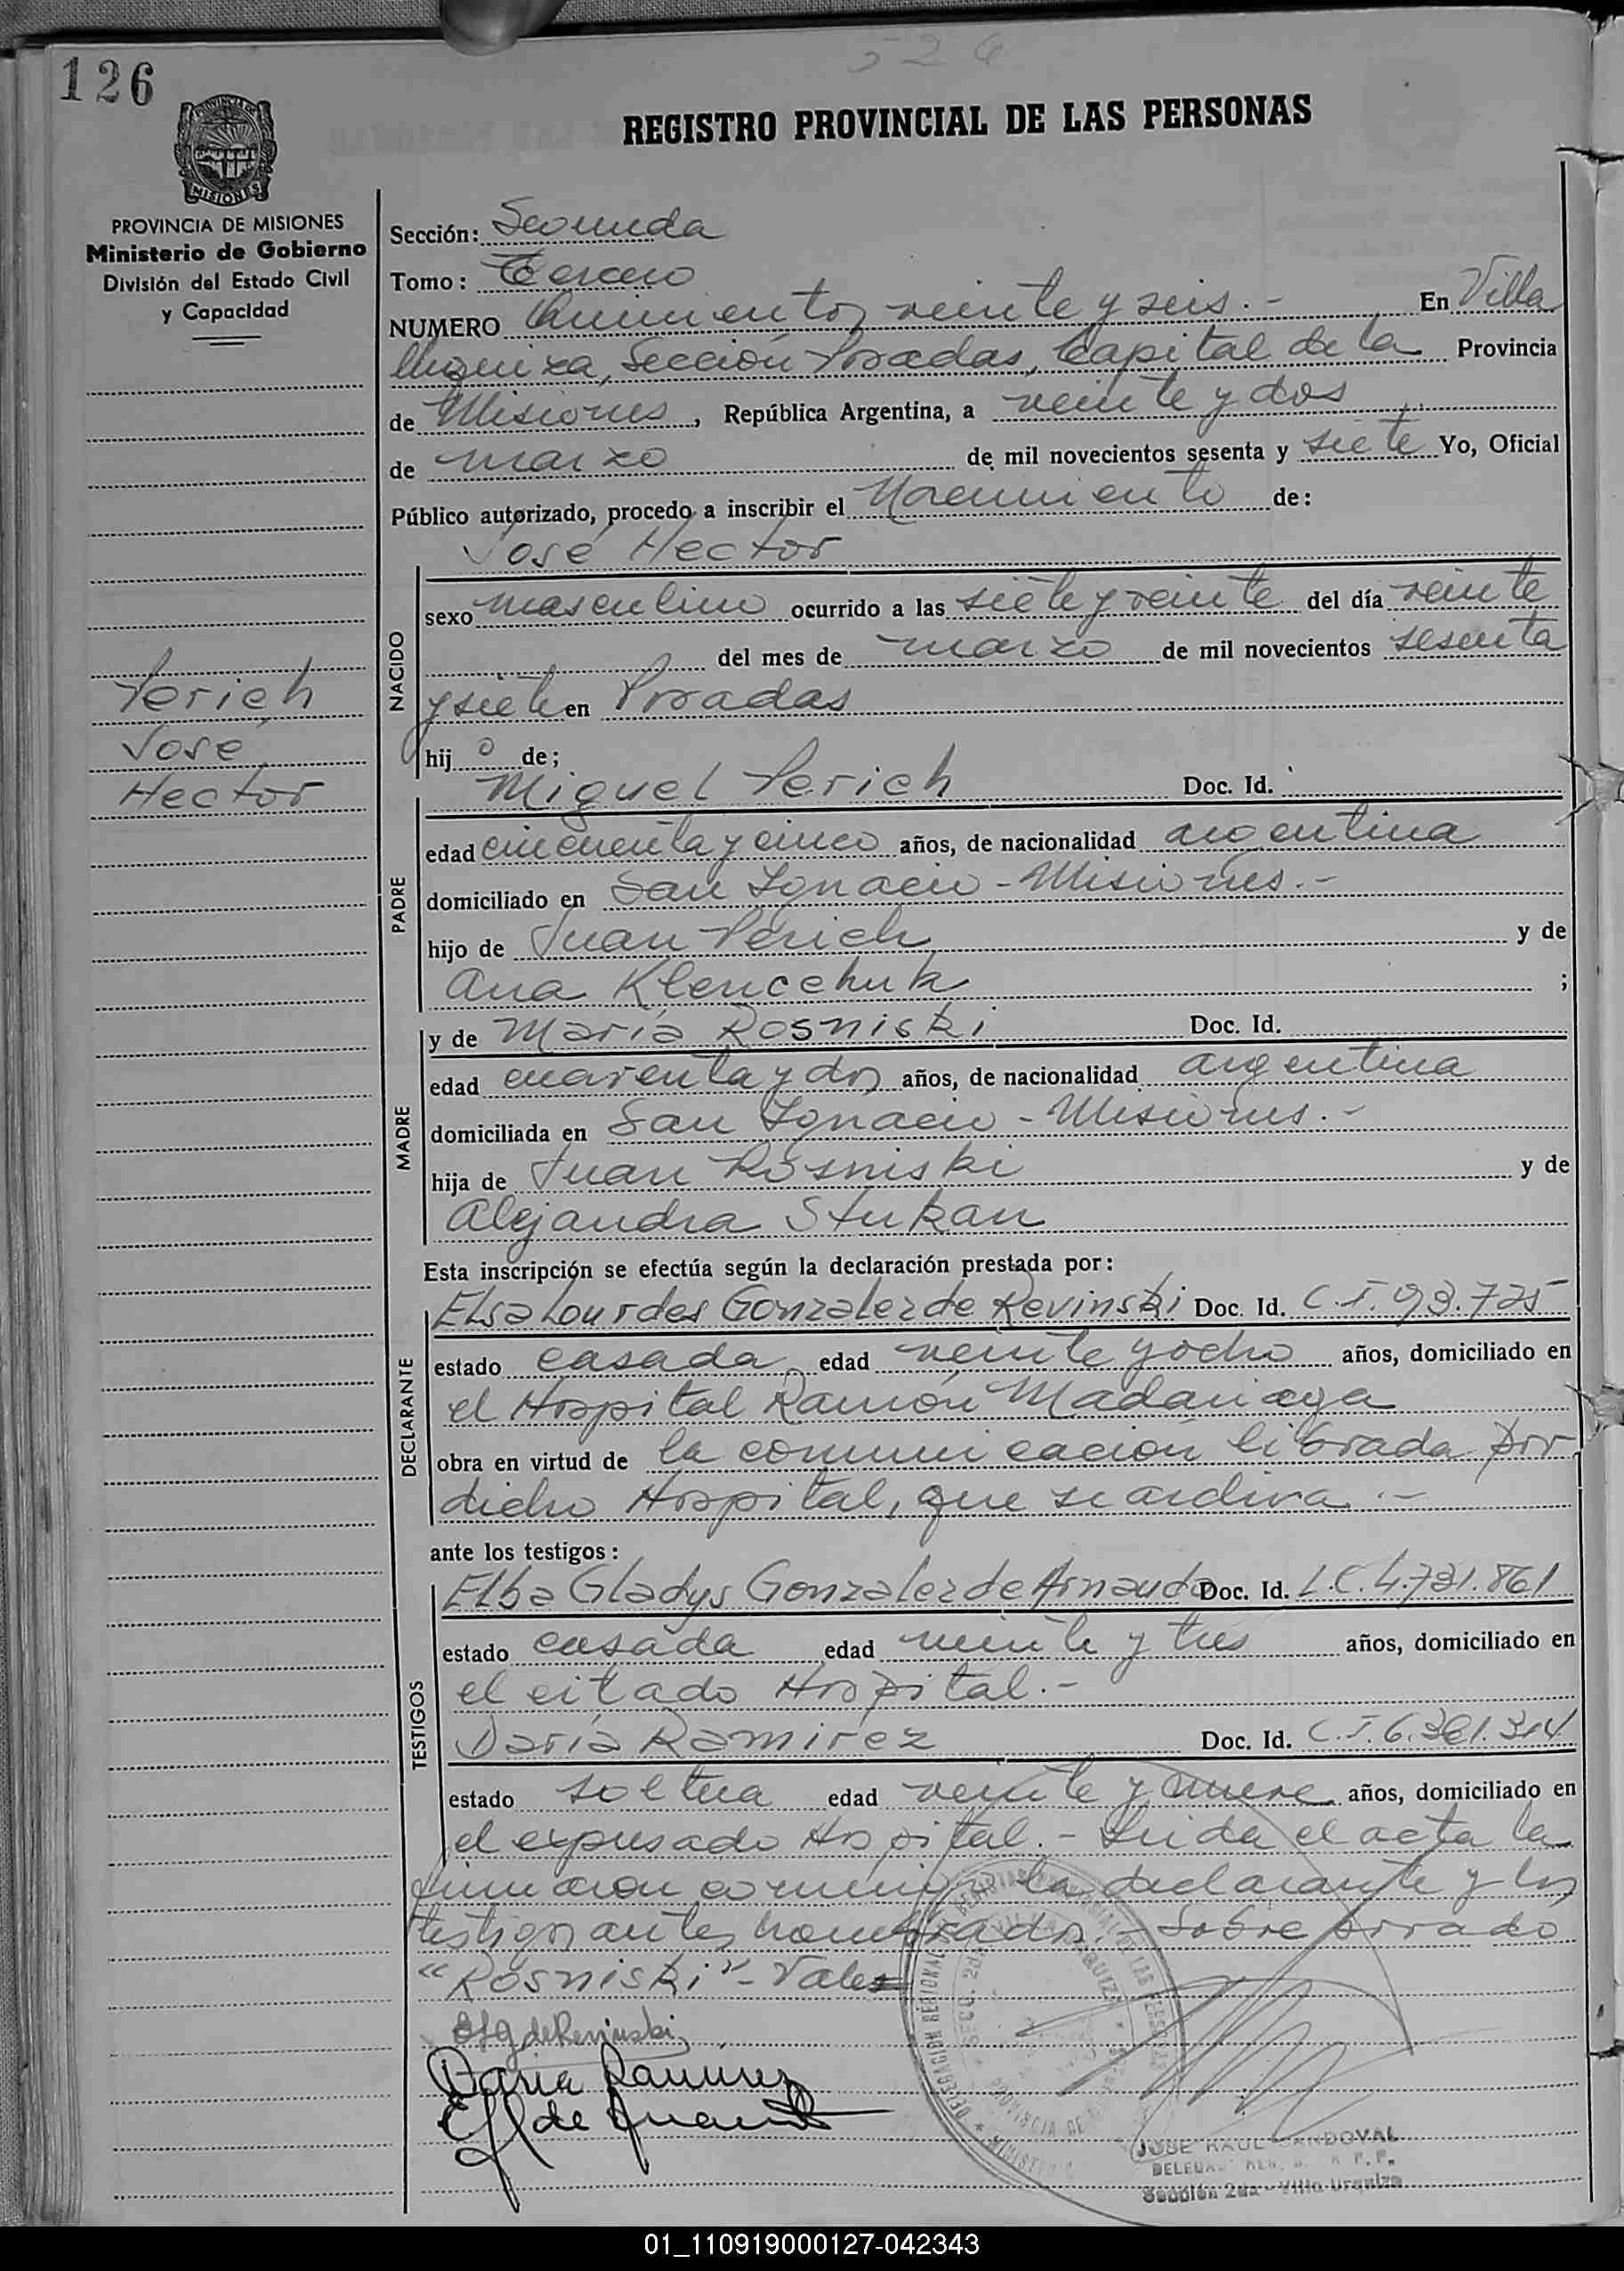 126
526
REGISTRO PROVINCIAL DE LAS PERSONAS
PROVINCIA DE MISIONES
Ministerio de Gobierno
División del Estado Civil
y Capacidad
Sección: Segunda
Tomo: Tercero
NUMERO Quinientos veinte y seis.- En Villa
Urquiza, Sección Posadas, Capital de la Provincia
de Misiones, República Argentina, a veinte y dos
de marzo de mil novecientos sesenta y siete Yo, Oficial
Público autorizado, procedo a inscribir el Nacimiento de:
José Hector
NACIDO
sexo masculino ocurrido a las siete y veinte del día veinte
del mes de marzo de mil novecientos sesenta
y siete en Posadas
hijo de;
Perich
José
Hector
PADRE
Miguel Perich Doc. Id.
edad cincuenta y cinco años, de nacionalidad argentina
domiciliado en San Ignacio - Misiones.-
hijo de Juan Perich y de
Ana Klencchuk ;
MADRE
y de María Rosniski Doc. Id.
edad cuarenta y dos años, de nacionalidad argentina
domiciliada en San Ignacio - Misiones.-
hija de Juan Rosniski y de
Alejandra Stukan
Esta inscripción se efectúa según la declaración prestada por:
DECLARANTE
Elsa Lourdes Gonzalez de Revinski Doc. Id. C.I. 93.725
estado casada edad veinte y ocho años, domiciliado en
el Hospital Ramón Madariaga
obra en virtud de la comunicación librada por
dicho Hospital, que se archiva.-
ante los testigos:
TESTIGOS
Elba Gladys Gonzalez de Arnauda Doc. Id. L.C. 4.731.861
estado casada edad veinte y tres años, domiciliado en
el citado Hospital.-
Daría Ramirez Doc. Id. C.I. 6.361.314
estado soltera edad veinte y nueve años, domiciliado en
el expresado Hospital.- Leida el acta la
firmaron conmigo la declarante y los
testigos antes nombrados.- Sobre borrado
"Rosniski"- Vale=
ELG de Revinski
Daria Ramirez
JOSE RAUL SANDOVAL
Sección 2da - Villa Urquiza
01_110919000127-042343